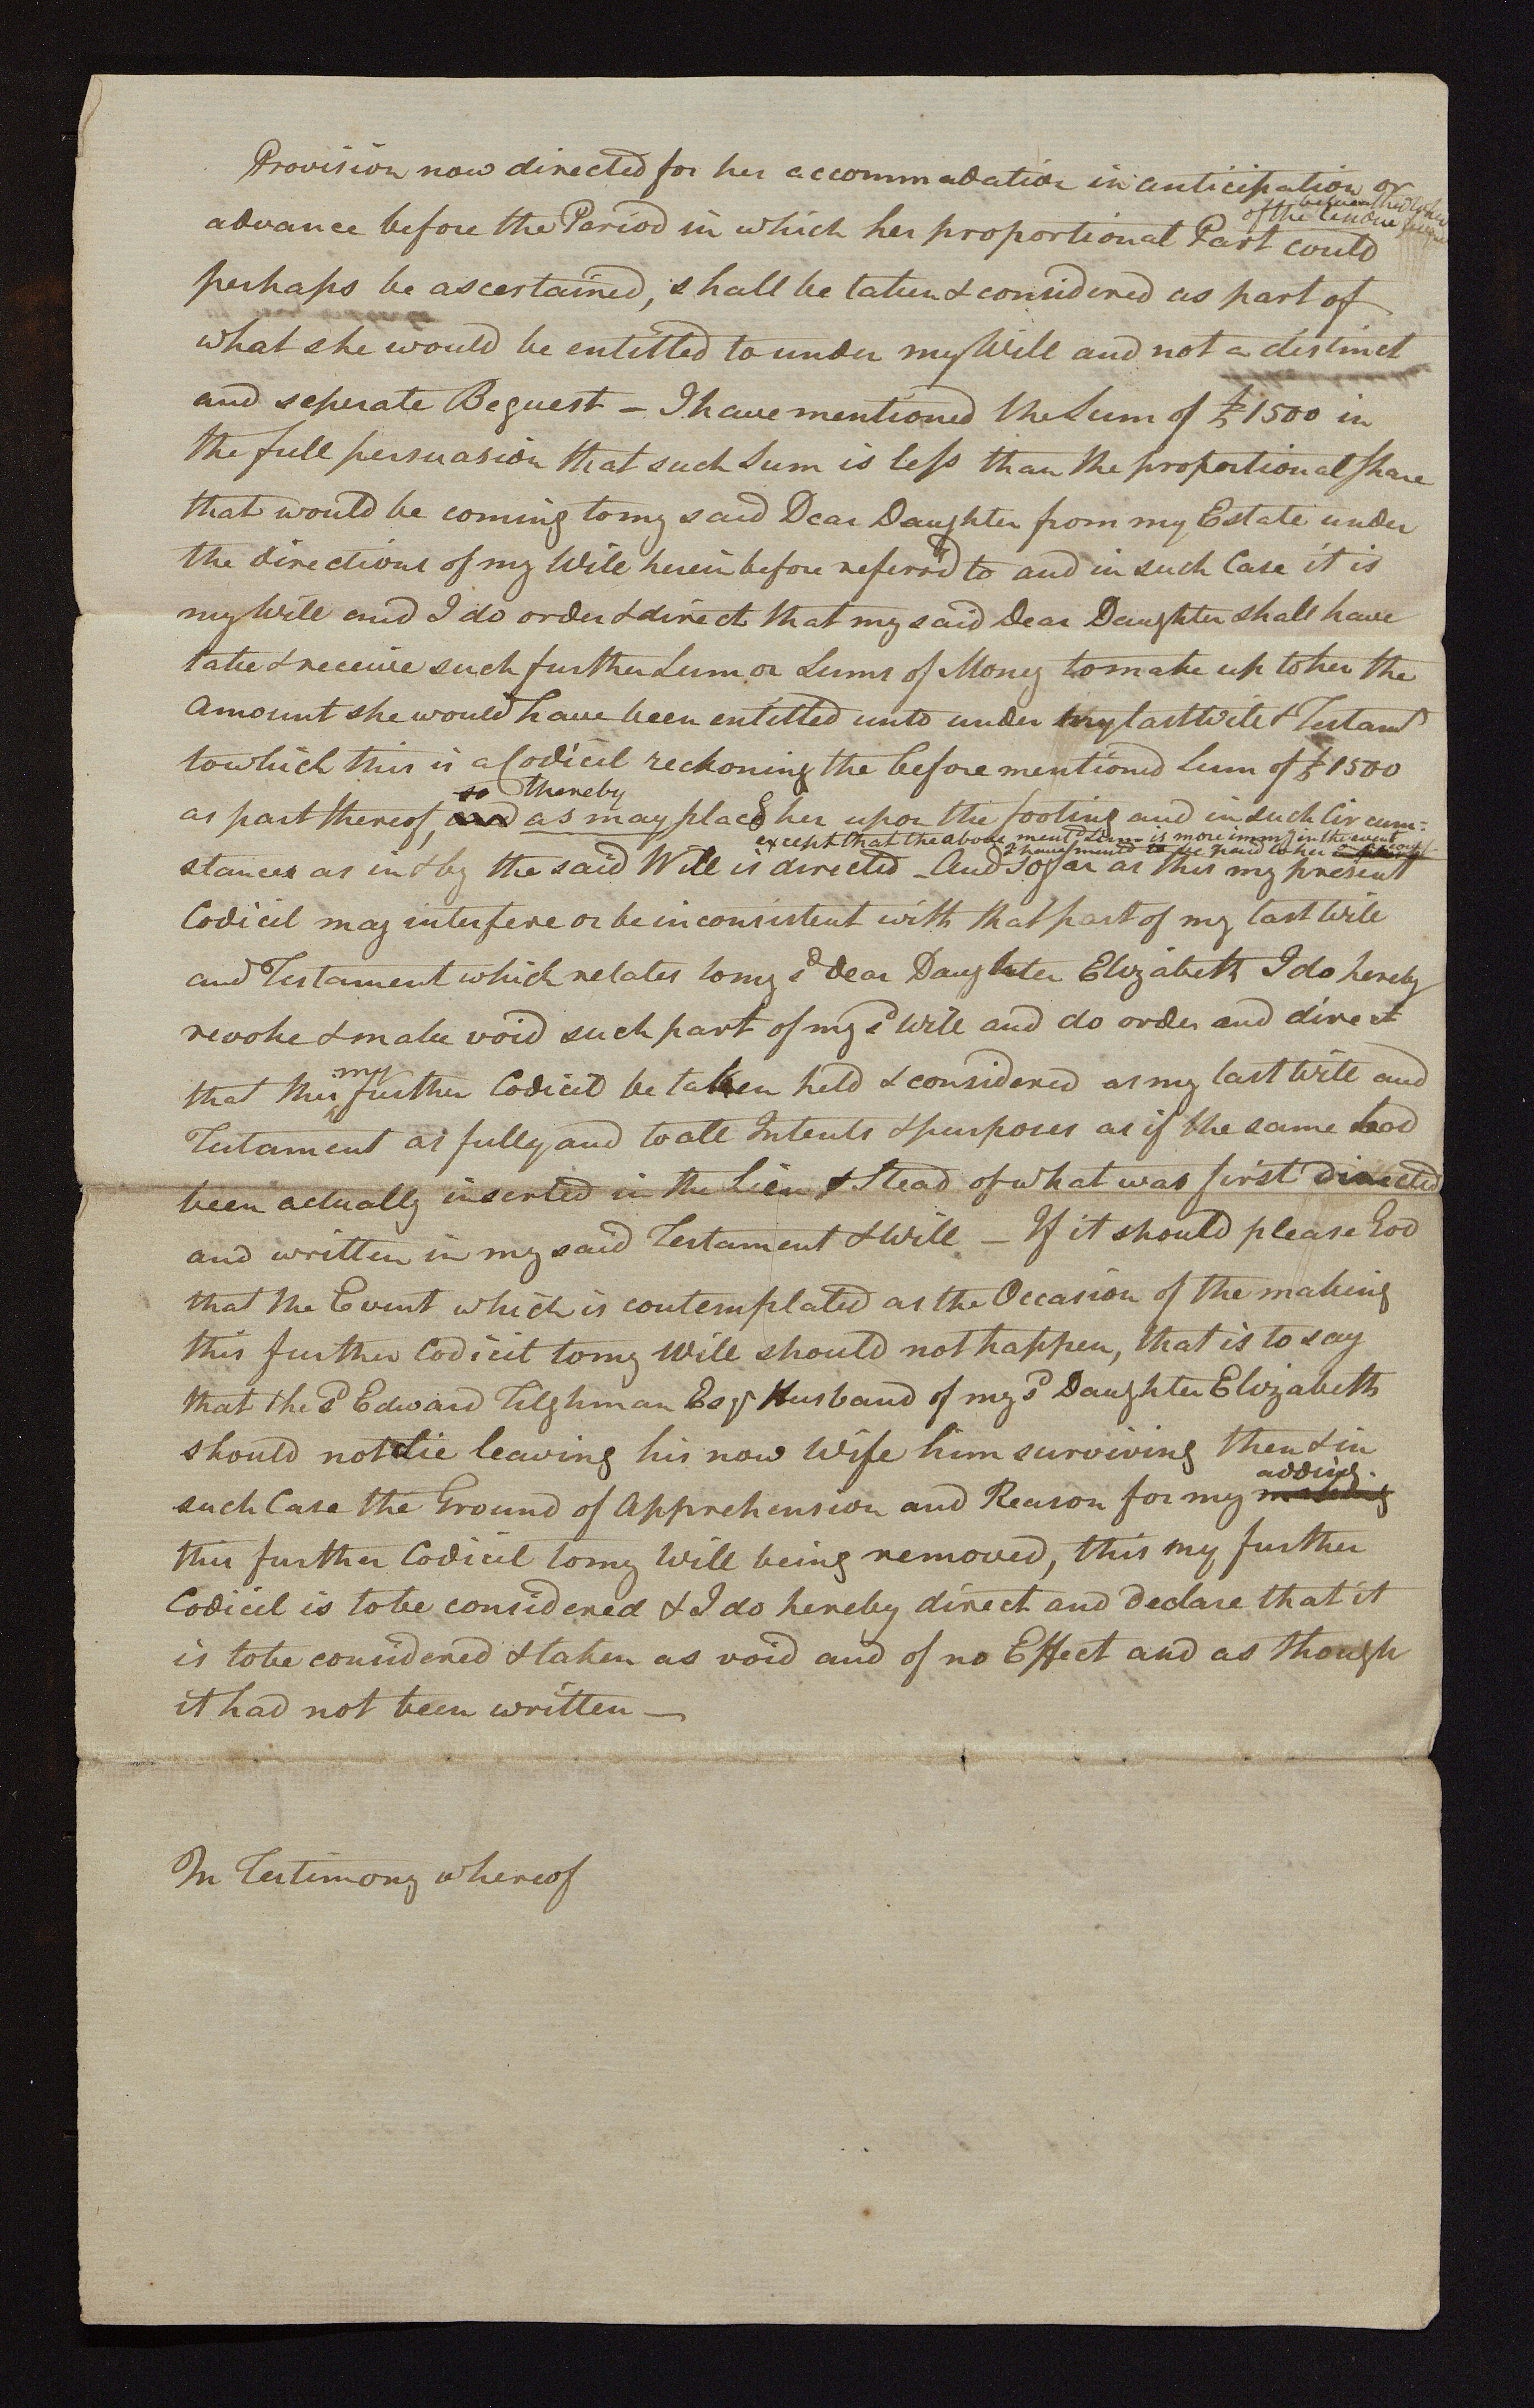 Provision now directed for her accommodation in anticipation or
of the
advance before the Period in which her proportional Part could
perhaps be ascertained, shall be taken & considered as part of
what she would be entitled to under my Will and not a distinct
and seperate Bequest — I have mentioned the Sum of £1500 in
the full persuasion that such Sum is less than the proportional Share
that would be coming to my said Dear Daughter from my Estate under
the directions of my Will herein before referr'd to and in such Case it is
my Will and I do order & direct that my said Dear Daughter shall have
take & receive such further Sum or Sums of Money to make up to her the
Amount she would have been entitled unto under my last Will & Testamt
to which this is a Codicil reckoning the before mentioned Sum of £1500
so thereby
as part thereof, and as may place her upon the footing and in such Circum=
except that the above mentd Sum is more immy in the event
I have mentd to be paid to her
stances as in & by the said Will is directed – And so far as this my present
Codicil may interfere or be inconsistent with that part of my last Will
and Testament which relates to my sd dear Daughter Elizabeth I do hereby
revoke & make void such part of my sd Will and do order and direct
my
that this further Codicil be taken held & considered as my last Will and
Testament as fully and to all Intents & purposes as if the same had
been actually inserted in the Lieu & Stead of what was first directed
and written in my said Testament & Will — If it should please God
that the Event which is contemplated as the Occasion of the making
this further Codicil to my Will should not happen, that is to say
that the sd Edward Tilghman Esqr Husband of my sd Daughter Elizabeth
should not die leaving his now Wife him surviving then & in
adding
such Case the Ground of Apprehension and Reason for my making
this further Codicil to my Will being removed, this my further
Codicil is to be considered & I do hereby direct and declare that it
is to be considered & taken as void and of no Effect and as though
it had not been written —
In Testimony whereof